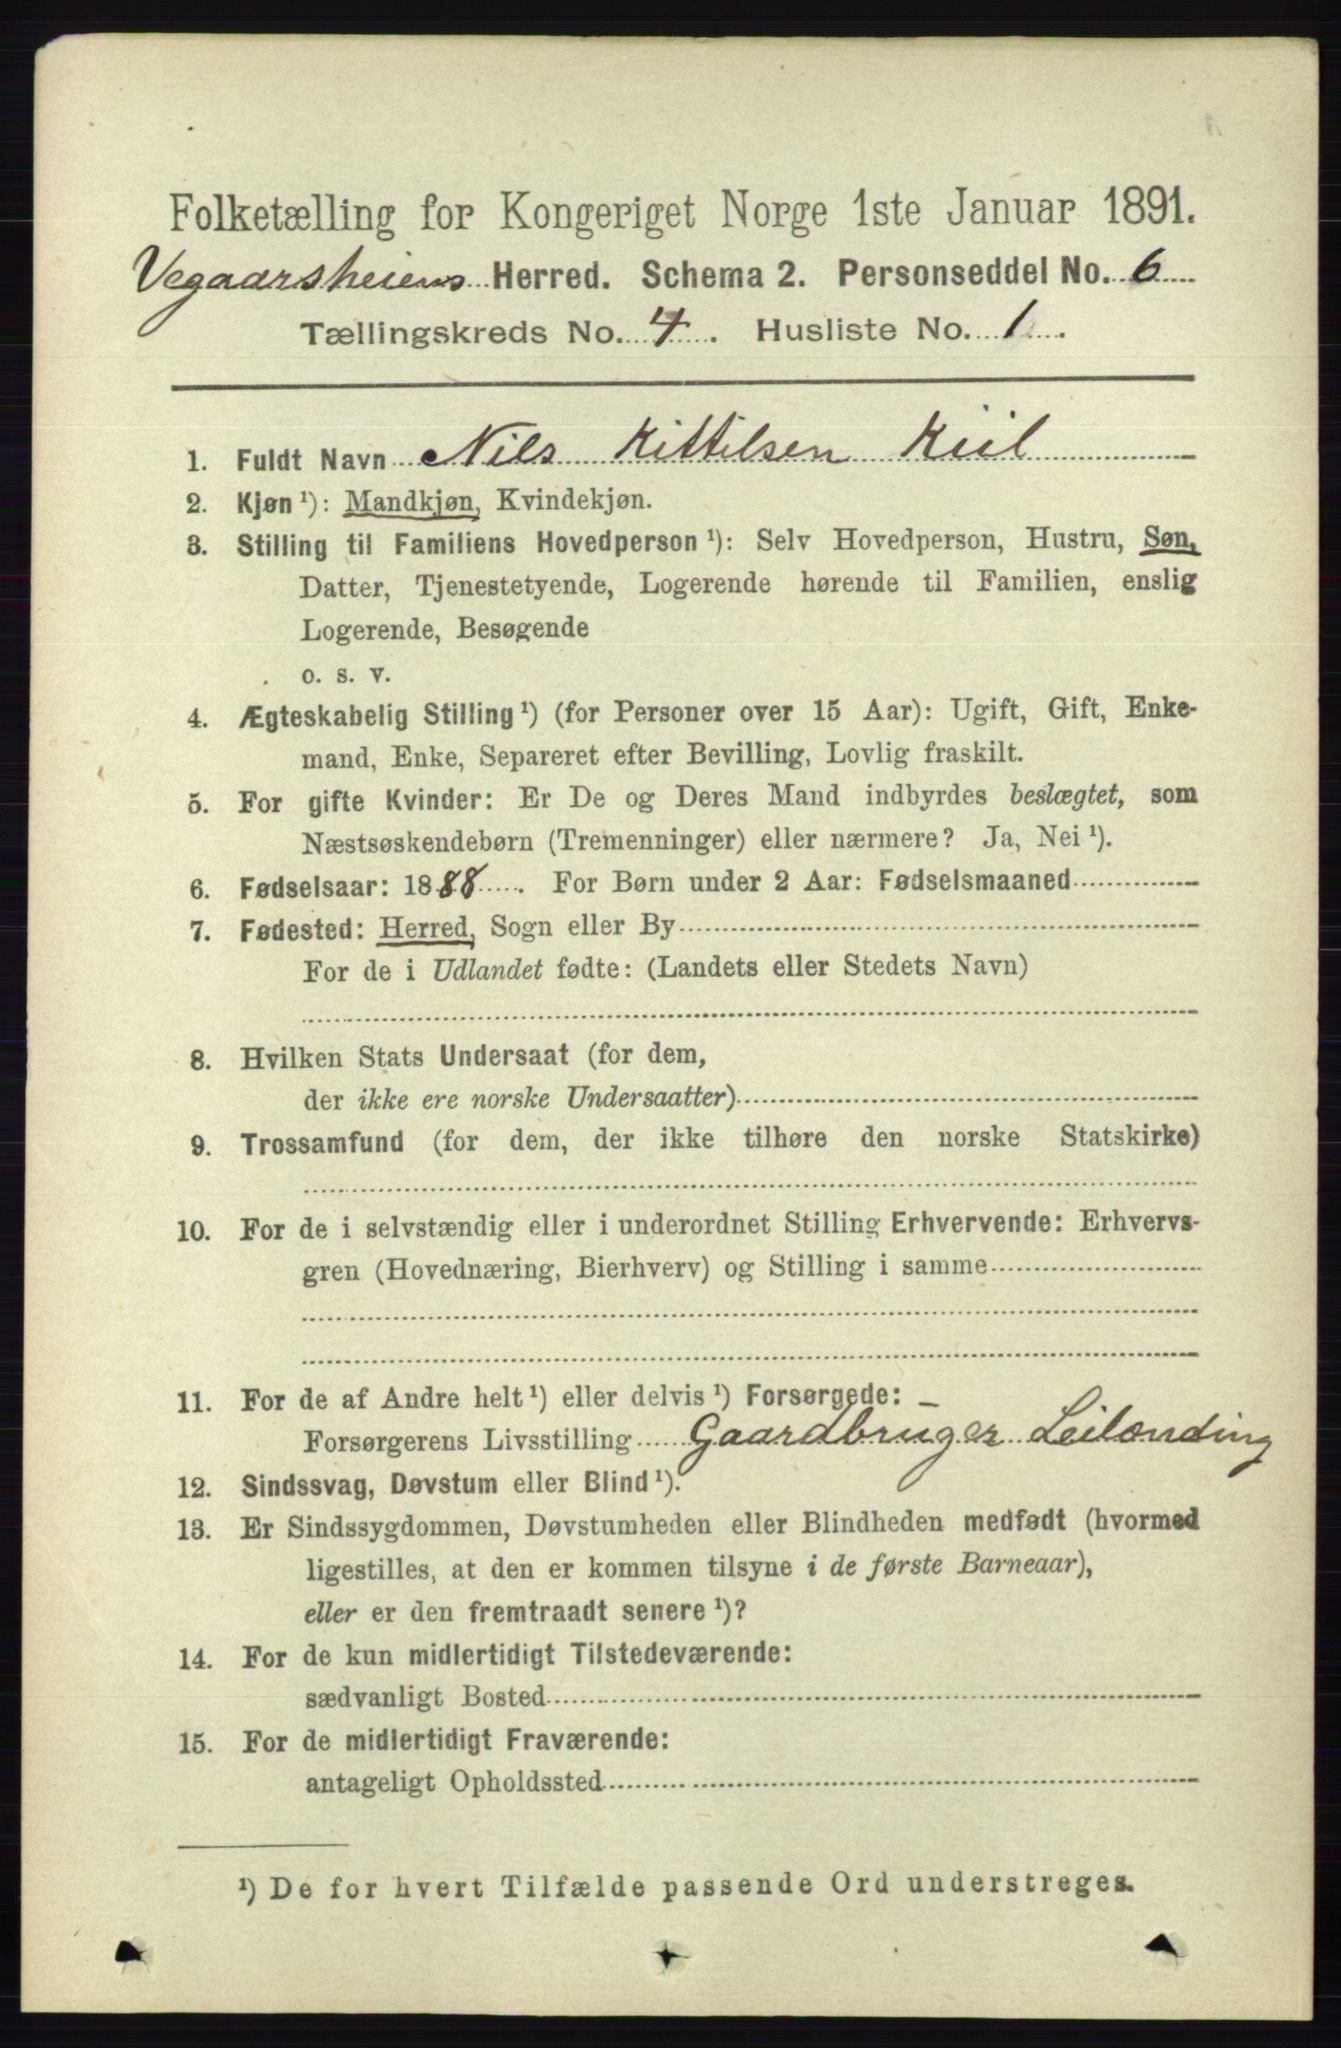 Folketælling for Kongeriget Norge 1ste Januar 1891.
Vegaarsheiens Herred. Schema 2. Personseddel No. 6
Tællingskreds No. 4. Husliste No. 1.
1. Fuldt Navn Nils Kittilsen Kiil
2. Kjøn¹): Mandkjøn, Kvindekjøn.
3. Stilling til Familiens Hovedperson¹): Selv Hovedperson, Hustru, Søn,
Datter, Tjenestetyende, Logerende hørende til Familien, enslig
Logerende, Besøgende
o. s. v.
4. Ægteskabelig Stilling¹) (for Personer over 15 Aar): Ugift, Gift, Enke-
mand, Enke, Separeret efter Bevilling, Lovlig fraskilt.
5. For gifte Kvinder: Er De og Deres Mand indbyrdes beslægtet, som
Næstsøskendebørn (Tremenninger) eller nærmere? Ja, Nei¹).
6. Fødselsaar: 1888. For Børn under 2 Aar: Fødselsmaaned
7. Fødested: Herred, Sogn eller By
For de i Udlandet fødte: (Landets eller Stedets Navn)
8. Hvilken Stats Undersaat (for dem,
der ikke ere norske Undersaatter)
9. Trossamfund (for dem, der ikke tilhøre den norske Statskirke)
10. For de i selvstændig eller i underordnet Stilling Erhvervende: Erhvervs-
gren (Hovednæring, Bierhverv) og Stilling i samme
11. For de af Andre helt¹) eller delvis¹) Forsørgede:
Forsørgerens Livsstilling Gaardbruger Leilænding
12. Sindssvag, Døvstum eller Blind¹).
13. Er Sindssygdommen, Døvstumheden eller Blindheden medfødt (hvormed
ligestilles, at den er kommen tilsyne i de første Barneaar),
eller er den fremtraadt senere¹)?
14. For de kun midlertidigt Tilstedeværende:
sædvanligt Bosted
15. For de midlertidigt Fraværende:
antageligt Opholdssted
¹) De for hvert Tilfælde passende Ord understreges.